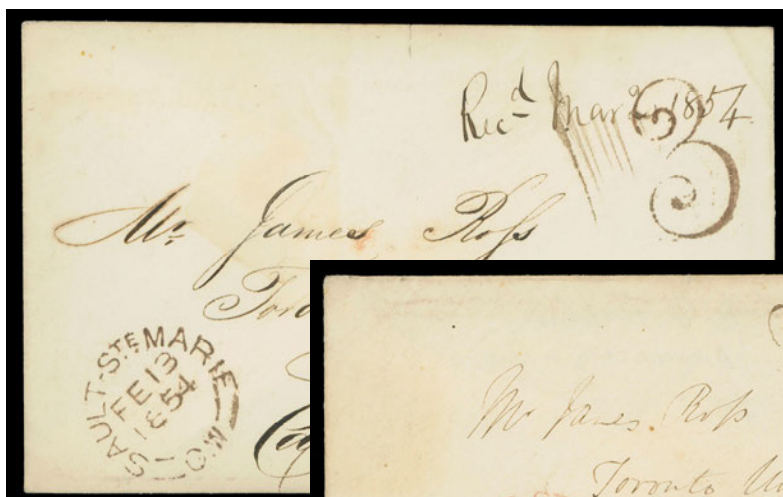 Recd Mar 2, 1854.
3
Mr. James Ross
SAULT-STE MARIE
FE 13
1854
Mr James Ross
Toronto